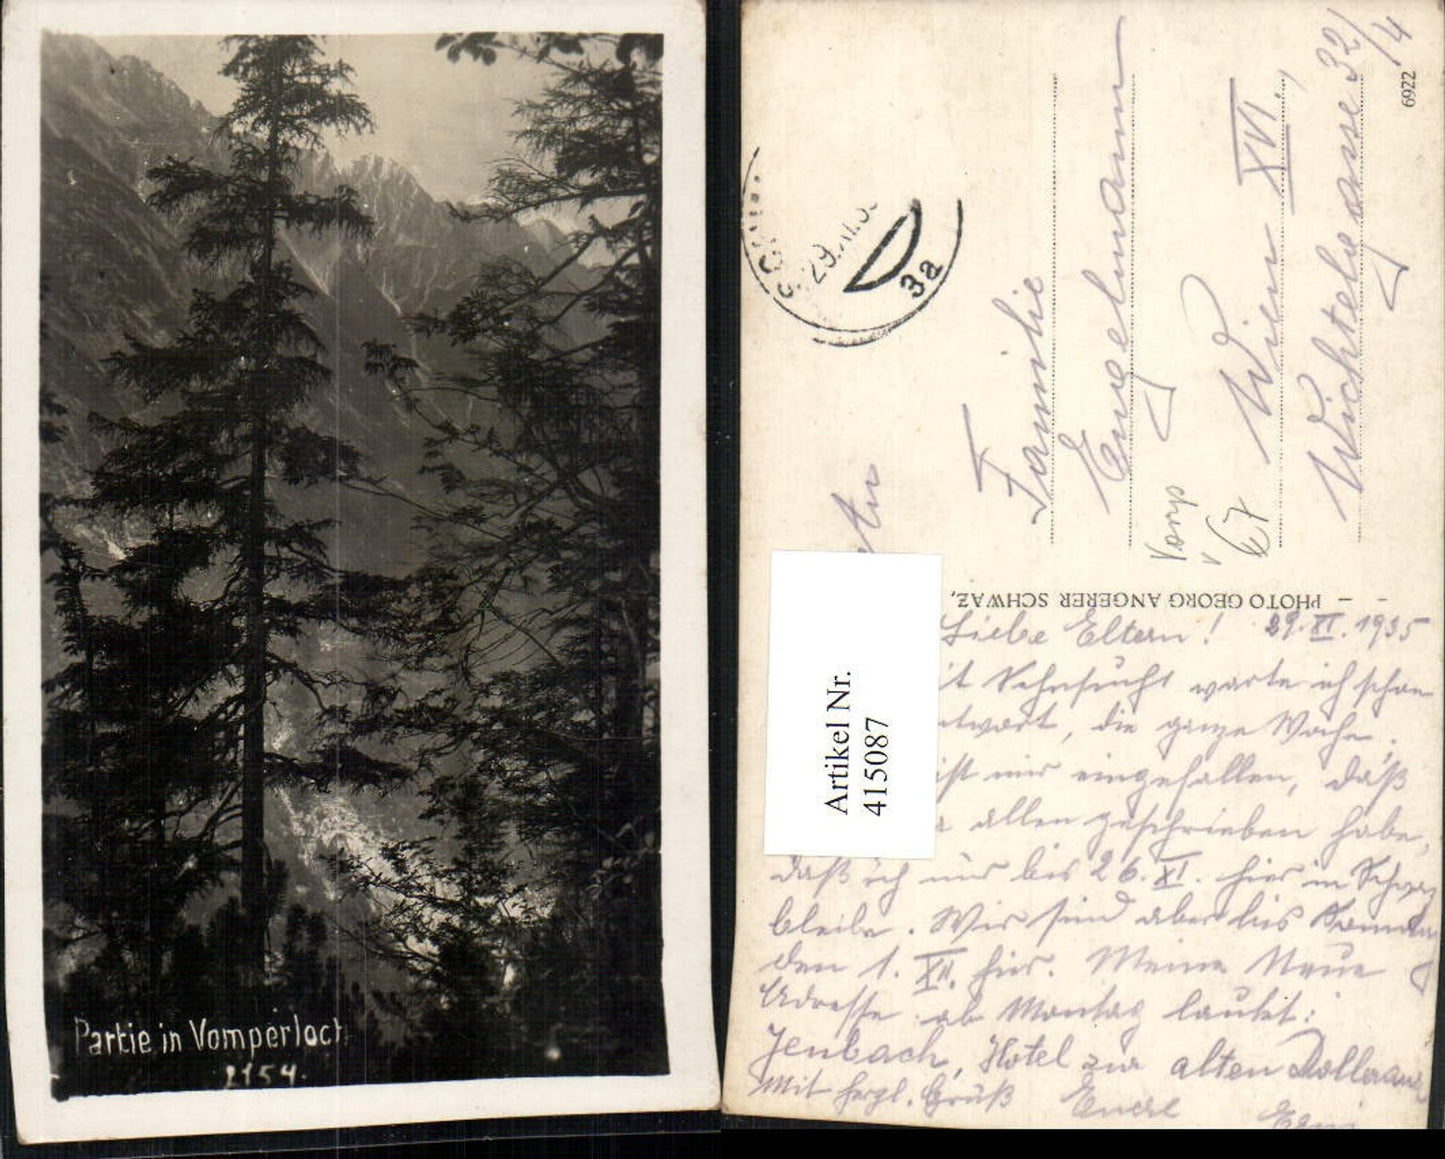 Partie in Vomperloch
2154.
29.
3a
Familie
Engelmann
Wien XVI.,
Wichtelgasse 32/
/4
Vomp
67
6922
PHOTO GEORG ANGERER SCHWAZ,
Artikel Nr.
415087
Liebe Eltern! 29. XI. 1935
it Sehnsucht warte ich schon
twort, die ganze Woche,
ist mir eingefallen, daß
allen geschrieben habe,
daß ich nur bis 26. XI. hier in Schwaz
bleibe. Wir sind aber bis Sonntag
den 1. XII. hier. Meine Neue
Adresse ab Montag lautet:
Jenbach, Hotel zur alten
Mit herzl. Gruß Euere Erni